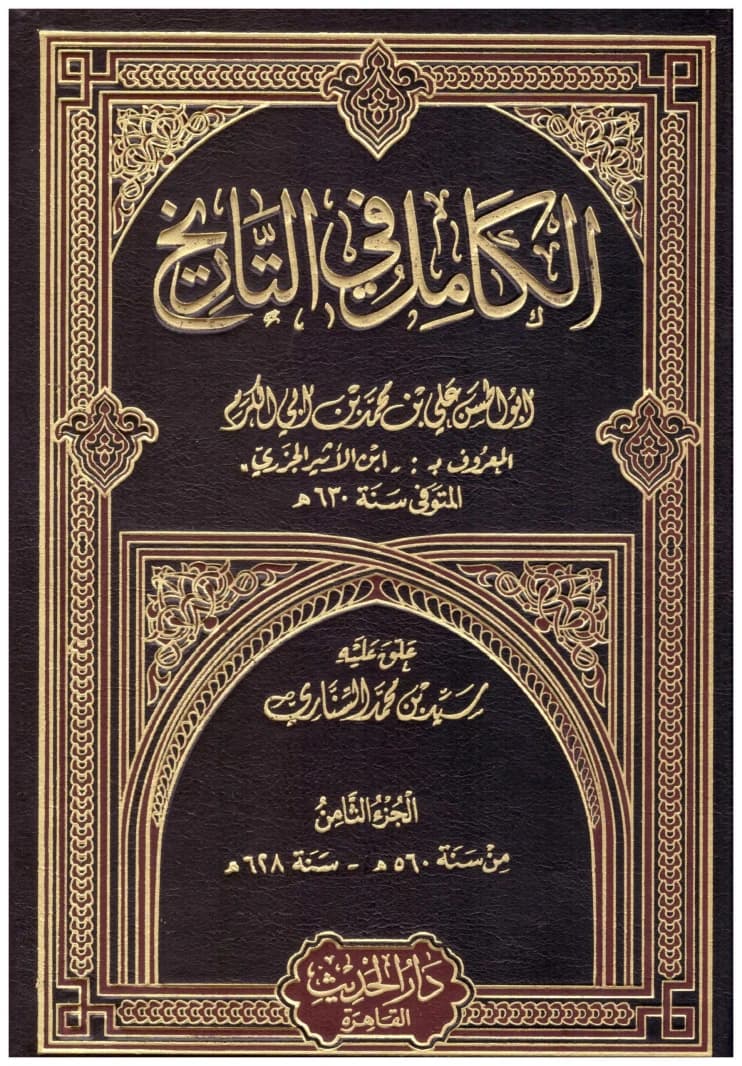 الكامل في التاريخ
ابو الحسن علي بن محمد بن ابي الكرم
المعروف بـ : "ابن الأثير الجزري"
المتوفى سنة ٦٣٠ هـ
علق عليه
سيد بن محمد السناري
الجزء الثامن
من سنة ٥٦٠ هـ - سنة ٦٢٨ هـ
دار الحديث
القاهرة